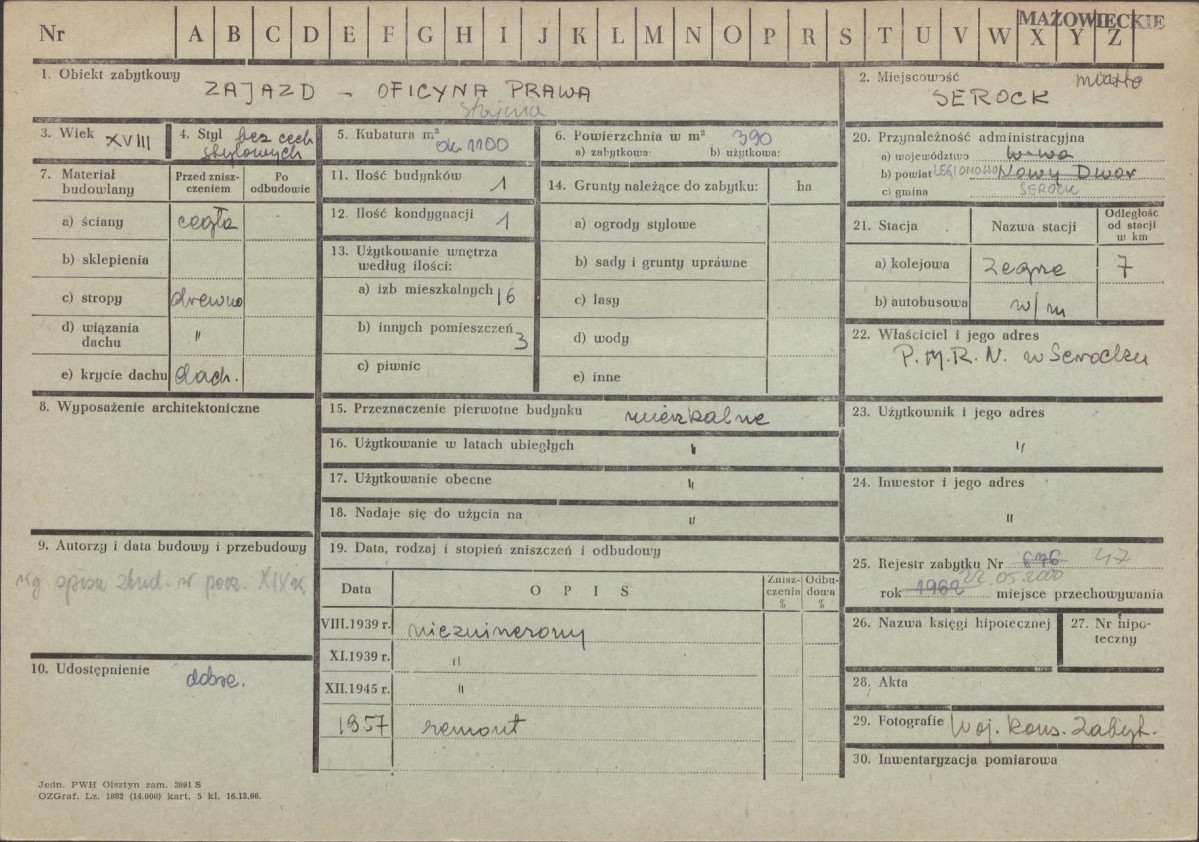 MAZOWIECKIE
Nr A B C D E F G H I J K L M N O P R S T U V W X Y Z
1. Obiekt zabytkowy
ZAJAZD – OFICYNA PRAWA
stajnia
2. Miejscowość miasto
SEROCK
3. Wiek XVIII
4. Styl bez cech
stylowych
5. Kubatura m³
ok 1100
6. Powierzchnia w m² 390
a) zabytkowa: b) użytkowa:
7. Materiał
budowlany
Przed znisz-
czeniem
Po
odbudowie
a) ściany cegła
b) sklepienia
c) stropy drewno
d) wiązania
dachu "
e) krycie dachu dach.
11. Ilość budynków 1
12. Ilość kondygnacji 1
13. Użytkowanie wnętrza
według ilości:
a) izb mieszkalnych 16
b) innych pomieszczeń 3
c) piwnic
14. Grunty należące do zabytku: ha
a) ogrody stylowe
b) sady i grunty uprawne
c) lasy
d) wody
e) inne
20. Przynależność administracyjna
a) województwo W-wa
b) powiat LEGIONOWO Nowy Dwór
c) gmina SEROCK
21. Stacja Nazwa stacji
Odległość
od stacji
w km
a) kolejowa Zegrze 7
b) autobusowa w/m
22. Właściciel i jego adres
P.M.R.N. w Serocku
8. Wyposażenie architektoniczne
15. Przeznaczenie pierwotne budynku mieszkalne
16. Użytkowanie w latach ubiegłych "
17. Użytkowanie obecne "
18. Nadaje się do użycia na "
23. Użytkownik i jego adres
"
24. Inwestor i jego adres
"
9. Autorzy i data budowy i przebudowy
wg spisu zbud. w pocz. XIX w
10. Udostępnienie dobre.
19. Data, rodzaj i stopień zniszczeń i odbudowy
Data OPIS
Znisz-
czenia
%
Odbu-
dowa
%
VIII.1939 r. niezniszczony
XI.1939 r. "
XII.1945 r. "
1957 remont
25. Rejestr zabytku Nr 676 47
22.05.2000
rok 1962 miejsce przechowywania
26. Nazwa księgi hipotecznej
27. Nr hipo-
teczny
28. Akta
29. Fotografie Woj. Kons. Zabyt.
30. Inwentaryzacja pomiarowa
Jedn. PWH Olsztyn zam. 3991 S
OZGraf. Lz. 1882 (14.000) kart. 5 kl. 16.12.66.